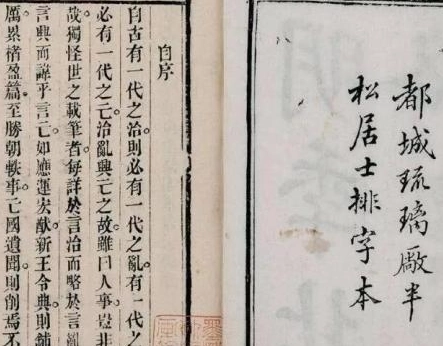 都城琉璃廠半
松居士排字本
自序
自古有一代之治則必有一代之亂有一代
必有一代之亡治亂興亡之故雖曰人事豈非
哉獨怪世之載筆者每詳於言治而略於言亂
言興而諱乎言亡如應運猷新王令典則鋪
厲累楮盈篇至勝朝軼事亡國遺聞則削焉不